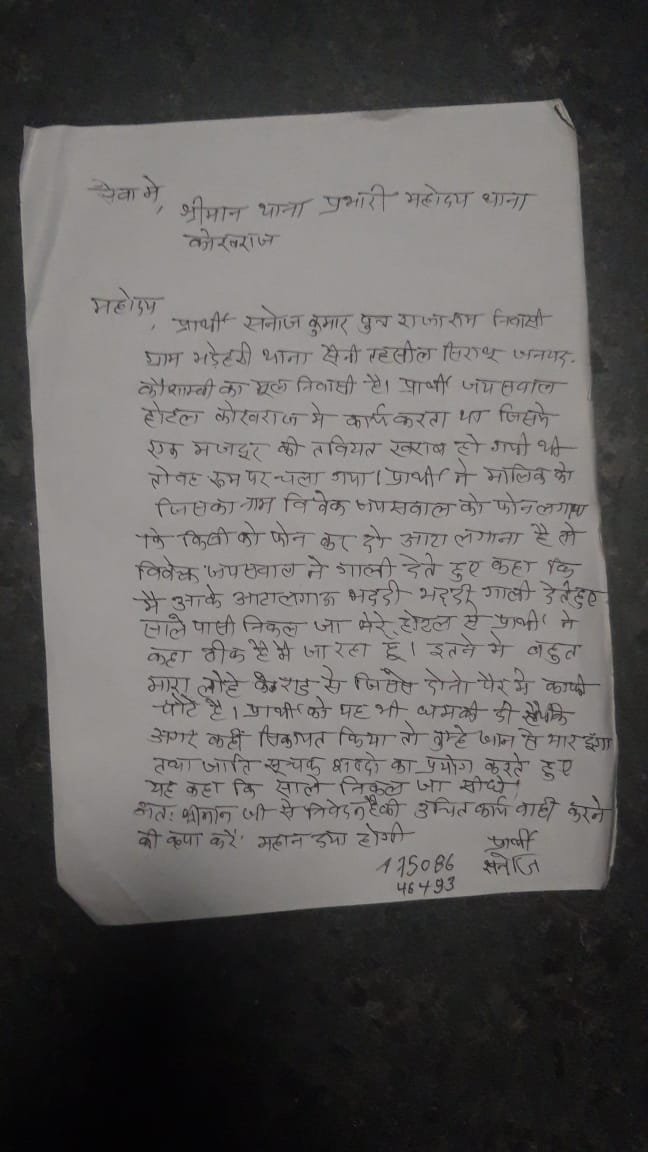 सेवा मे,
श्रीमान थाना प्रभारी महोदय थाना
कोखराज
महोदय,
प्रार्थी सनोज कुमार पुत्र राजाराम निवासी
ग्राम थाना सैनी तहसील सिराथू जनपद-
कौशाम्बी का मूल निवासी है। प्रार्थी जयसवाल
होटल कोखराज मे कार्य करता था जिसके
एक मजदूर की तवियत खराब हो गयी थी
तो वह रूम पर चला गया। प्रार्थी ने मालिक को
जिसका नाम विवेक जयसवाल को फोन लगाया
कि किसी को फोन कर दो आटा लगाना है तो
विवेक जयसवाल ने गाली देते हुए कहा कि
मै आके आटा लगाऊ भददी भददी गाली देते हुए
साले पासी निकल जा मेरे होटल से प्रार्थी ने
कहा ठीक है मै जा रहा हूं। इतने मे बहुत
मारा लोहे के राड से जिससे दोनो पैर मे काफी
चोटे है। प्रार्थी को यह भी धमकी दी कि
अगर कही सिकायत किया तो तुम्हे जान से मार दूंगा
तथा जाति सूचक शब्दो का प्रयोग करते हुए
यह कहा कि साले निकल जा सीधे।
अतः श्रीमान जी से निवेदन है की उचित कार्यवाही करने
की कृपा करें महान दया होगी
प्रार्थी
सनोज
175086
46493